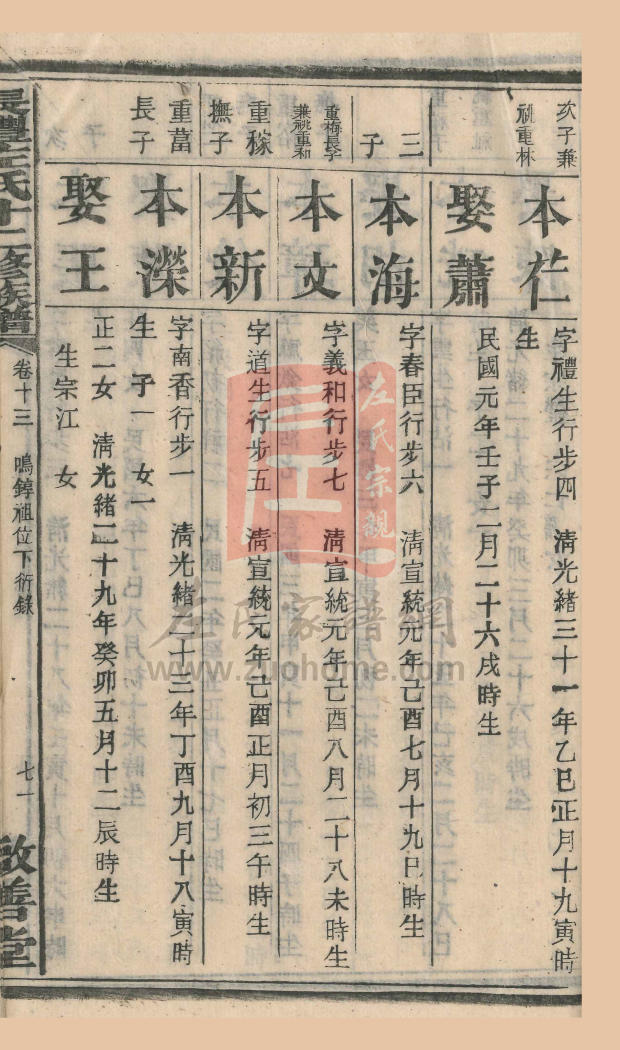 次子兼
祧重林
本芢
字禮生行步四 清光緒三十一年乙巳正月十九寅時
生
娶蕭
民國元年壬子二月二十六戌時生
三
子
本海
字春臣行步六 清宣統元年己酉七月十九日時生
重梅長子
兼祧重和
本文
字義和行步七 清宣統元年己酉八月二十八未時生
重稼
撫子
本新
字道生行步五 清宣統元年己酉正月初三午時生
重菖
長子
本濚
字南香行步一 清光緒二十三年丁酉九月十八寅時
生 子一 女一
娶王
正二女 清光緒二十九年癸卯五月十二辰時生
生宗江 女
左氏十二修族譜
卷十三 鳴錞祖位下衍錄
七一
敦善堂
左氏宗親
左氏家譜網
www.zuohome.com